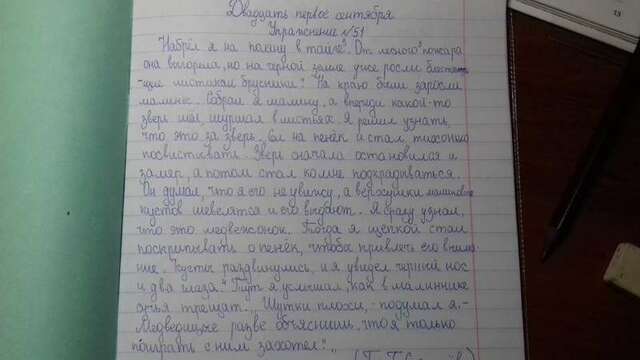 Двадцать первое сентября
Упражнение №51
Набрёл я на поляну в тайге. От лесного пожара
она выгорела, но на чёрной земле уже росли блестя-
-щие листочки брусники. На краю были заросли
малины. Собрал я малину, а впереди какой-то
зверь шёл, шуршал в листьях. Я решил узнать,
что это за зверь. Сел на пенёк и стал тихонько
посвистывать. Зверь сначала остановился и
замер, а потом стал ко мне подкрадываться.
Он думал, что я его не увижу, а верхушки
кустов шевелятся и его выдают. Я сразу узнал,
что это медвежонок. Тогда я щепкой стал
поскрипывать о пенёк, чтобы привлечь его внима-
ние. Кусты раздвинулись, и я увидел чёрный нос
и два глаза. Тут я услышал, как в малиннике
сучья трещат. Шутки плохи, - подумал я. -
Медведице разве объяснишь, что я только
поиграть с ним захотел?